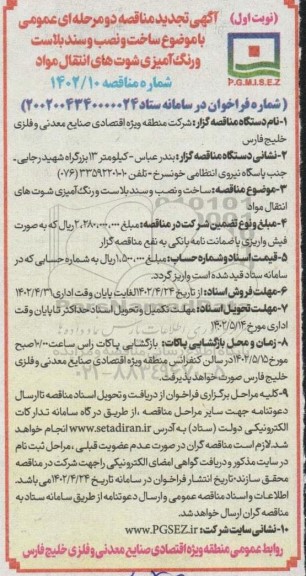 (نوبت اول)
آگهی تجدید مناقصه دو مرحله ای عمومی
با موضوع ساخت و نصب و سندبلاست
و رنگ آمیزی شوت های انتقال مواد
شماره مناقصه ۱۴۰۲/۱۰
P.G.M.I.S.E.Z
(شماره فراخوان در سامانه ستاد ۲۰۰۲۰۰۴۳۴۰۰۰۰۰۲۴)
۱-نام دستگاه مناقصه گزار: شرکت منطقه ویژه اقتصادی صنایع معدنی و فلزی
خلیج فارس
۲-نشانی دستگاه مناقصه گزار: بندرعباس - کیلومتر ۱۳ بزرگراه شهید رجایی-
جنب پاسگاه نیروی انتظامی خونسرخ - تلفن ۱-۳۳۵۹۲۲۰۰ (۰۷۶)
۳-موضوع مناقصه: ساخت و نصب و سندبلاست و رنگ آمیزی شوت های
انتقال مواد
۴-مبلغ و نوع تضمین شرکت در مناقصه: مبلغ ۲،۲۸۰،۰۰۰،۰۰۰ ریال که به صورت
فیش واریزی یا ضمانت نامه بانکی به نفع مناقصه گزار
۵-قیمت اسناد و شماره حساب: مبلغ ۱،۵۰۰،۰۰۰ ریال به شماره حسابی که در
سامانه ستاد قید شده است واریز گردد.
۶-مهلت فروش اسناد: از تاریخ ۱۴۰۲/۴/۲۴ لغایت پایان وقت اداری ۱۴۰۲/۴/۳۱
۷-مهلت تحویل اسناد: مهلت تکمیل و تحویل اسناد حداکثر تا پایان وقت
اداری مورخ ۱۴۰۲/۵/۱۴
۸-زمان و محل بازگشایی پاکات: بازگشایی پاکات راس ساعت ۱۰:۰۰ صبح
مورخ ۱۴۰۲/۵/۱۵ در سالن کنفرانس منطقه ویژه اقتصادی صنایع معدنی و فلزی
خلیج فارس صورت خواهد پذیرفت.
۹-کلیه مراحل برگزاری فراخوان از دریافت و تحویل اسناد مناقصه تا ارسال
دعوتنامه جهت سایر مراحل مناقصه، از طریق درگاه سامانه تدارکات
الکترونیکی دولت (ستاد) به آدرس www.setadiran.ir انجام خواهد
شد. لازم است مناقصه گران در صورت عدم عضویت قبلی، مراحل ثبت نام
در سایت مذکور و دریافت گواهی امضای الکترونیکی را جهت شرکت در مناقصه
محقق سازند. تاریخ انتشار فراخوان در سامانه تاریخ ۱۴۰۲/۴/۲۴ می باشد.
اطلاعات و اسناد مناقصه عمومی و ارسال دعوتنامه از طریق سامانه ستاد به
مناقصه گران ارسال خواهد شد.
۱۰-نشانی سایت شرکت: www.PGSEZ.ir
روابط عمومی منطقه ویژه اقتصادی صنایع معدنی و فلزی خلیج فارس